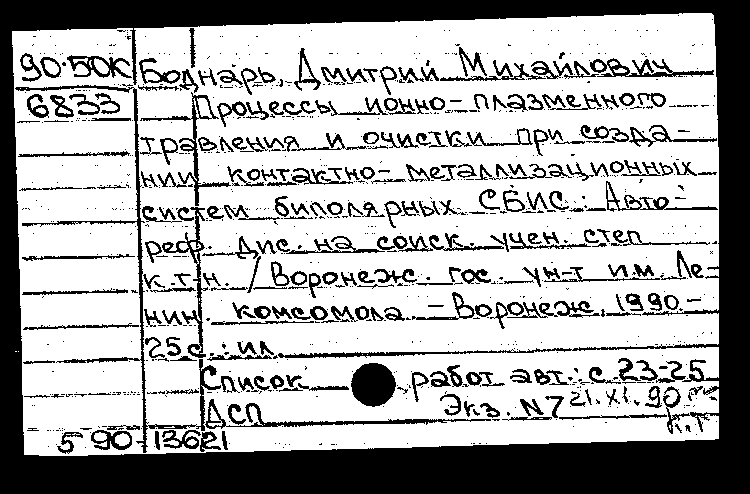 90-50К Боднарь, Дмитрий Михайлович
6833 Процессы ионно-плазменного
травления и очистки при созда-
нии контактно-металлизационных
систем биполярных СБИС: Авто-
реф. дис. на соиск. учен. степ
к.т.н. / Воронеж. гос. ун-т им. Ле-
нин. комсомола. - Воронеж, 1990.-
25с.: ил.
Список работ авт.: с. 23-25
ДСП Экз. N7 21.XI.90
к.т
5 90-13621